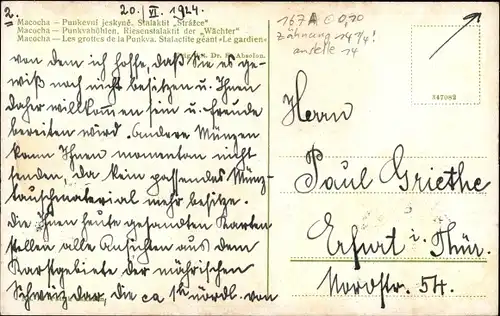 2.
20. VI. 1924.
Macocha — Punkevní jeskyně. Stalaktit "Strážce"
Macocha — Punkvahöhlen, Riesenstalaktit der „Wächter“
Macocha — Les grottes de la Punkva. Stalactite géant «Le gardien»
Dr. Absolon.
von dem ich hoffe, daß Sie es ge-
wiß noch nicht besitzen u. Ihnen
daher willkommen sein u. Freude
bereiten wird. Andere Münzen
kann Ihnen momentan nicht
senden, da kein passendes Münz-
tauschmaterial mehr besitze.
Die Ihnen heute gesandten Karten
stellen alle Ansichten aus dem
Karstgebiete der mährischen
Schweiz dar, die ca 1 St nördl. von
167A € 0,70
Zähnung 14 1/4!
anstelle 14
347982
Herrn
Paul Griethe
Erfurt i. Thür.
Nordstr. 54.